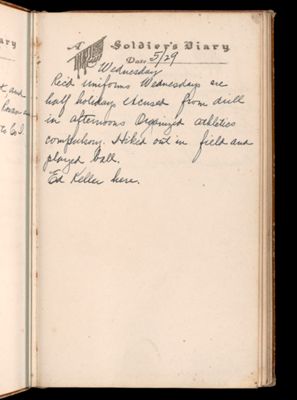 ary
t and
Reason
to Co I.
A Soldier's Diary
Date 5/29
Wednesday
Rec'd uniforms Wednesdays are
half holidays excused from drill
in afternoons Organized athletics
compulsory. Hiked out in field and
played ball.
Ed Keller here.